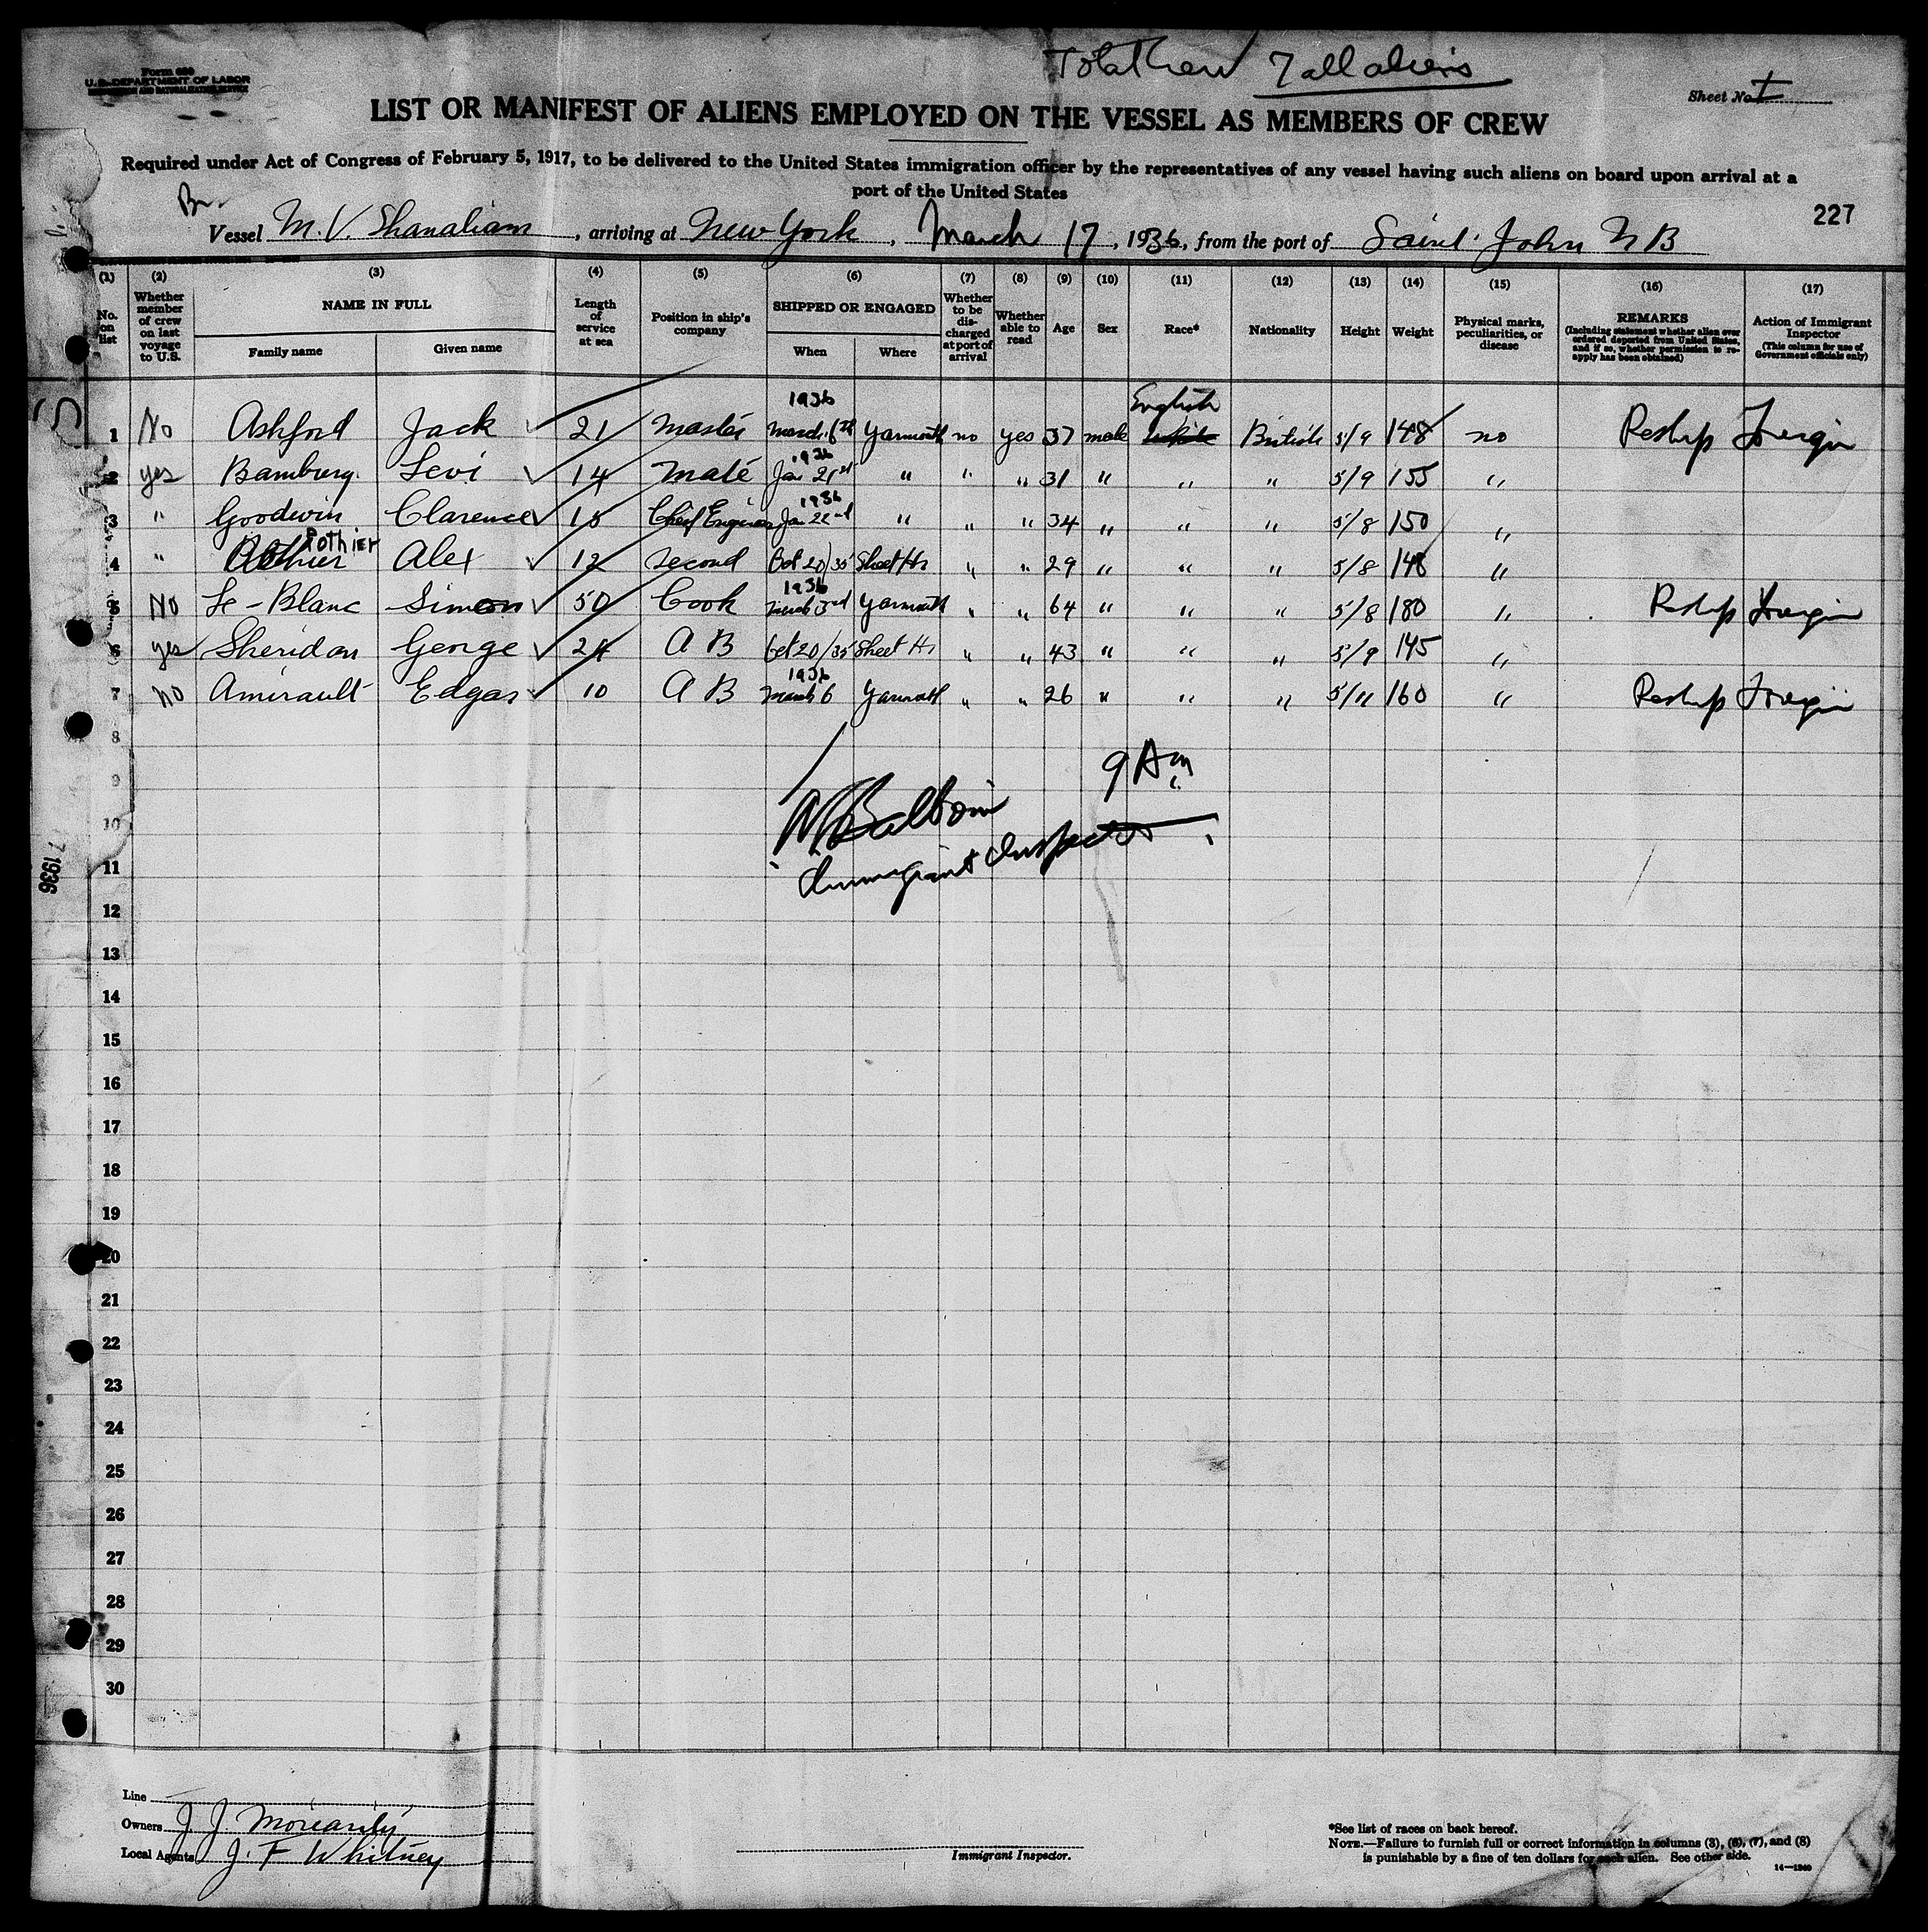 Total Crew 7 all aliens
Form 680
U. S. DEPARTMENT OF LABOR
IMMIGRATION AND NATURALIZATION SERVICE
Sheet No. I
LIST OR MANIFEST OF ALIENS EMPLOYED ON THE VESSEL AS MEMBERS OF CREW
Required under Act of Congress of February 5, 1917, to be delivered to the United States immigration officer by the representatives of any vessel having such aliens on board upon arrival at a
port of the United States
Br.
227
Vessel M.V. Shanalian, arriving at New York, March 17, 1936, from the port of Saint John N B
(1) (2) (3) (4) (5) (6) (7) (8) (9) (10) (11) (12) (13) (14) (15) (16) (17)
No. on list Whether member of crew on last voyage to U.S. NAME IN FULL Family name Given name Length of service at sea Position in ship's company SHIPPED OR ENGAGED When Where Whether to be discharged at port of arrival Whether able to read Age Sex Race* Nationality Height Weight Physical marks, peculiarities, or disease REMARKS (Including statement whether alien ever ordered deported from United States, and if so, whether permission to reapply has been obtained) Action of Immigrant Inspector (This column for use of Government officials only)
1 No Ashford Jack 21 Master 1936 March 6th Yarmouth no yes 37 male English White British 5/9 148 no Reship Foreign
2 yes Bamburg Levi 14 Mate 1936 Jan 21st " " " 31 " " " 5/9 155 "
3 " Goodwin Clarence 15 Chief Engineer 1936 Jan 22nd " " " 34 " " " 5/8 150 "
4 " Pothier Alex 12 Second Oct 20/35 Sheet Hr " " 29 " " " 5/8 148 "
5 No Le-Blanc Simeon 50 Cook 1936 March 3rd Yarmouth " " 64 " " " 5/8 180 " Reship Foreign
6 yes Sheridan George 24 A B Oct 20/35 Sheet Hr " " 43 " " " 5/9 145 "
7 no Amirault Edgar 10 A B 1936 March 6 Yarmouth " " 26 " " " 5/11 160 " Reship Foreign
8
9
9 Am
10
Baldwin
11
Immigrant Inspector
7 1936
12
13
14
15
16
17
18
19
20
21
22
23
24
25
26
27
28
29
30
Line
Owners J. J. Moriarity
Local Agents J. F Whitney
Immigrant Inspector.
*See list of races on back hereof.
NOTE.—Failure to furnish full or correct information in columns (3), (6), (7), and (8)
is punishable by a fine of ten dollars for each alien. See other side.
14—1240